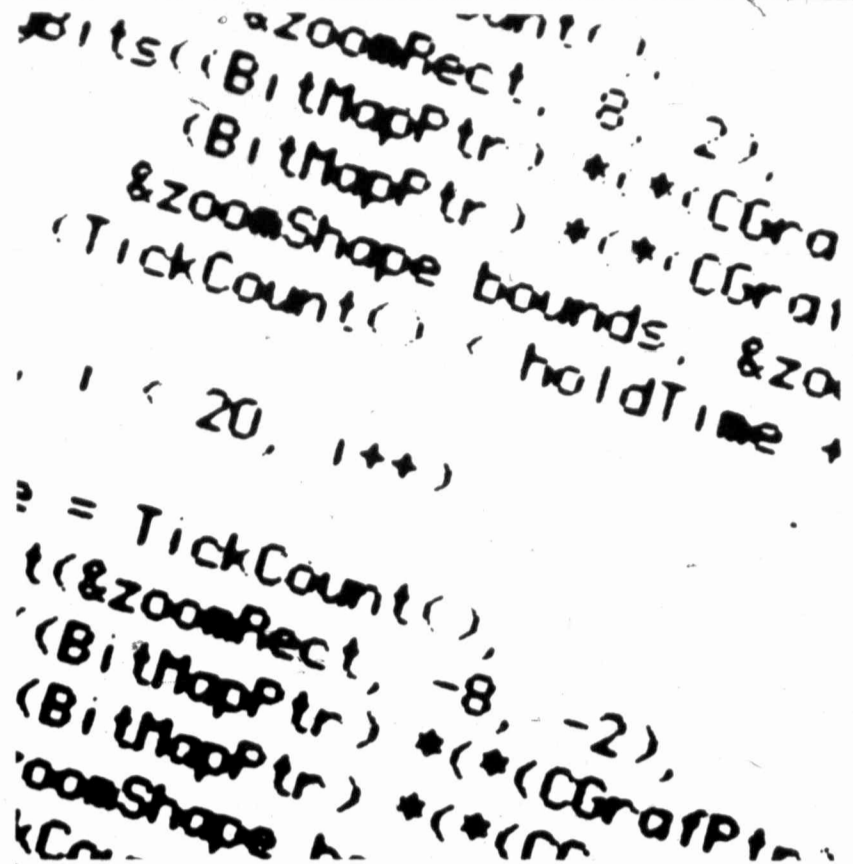 ount();
&zoomRect, 8, 2);
Bits((BitMapPtr) *(*(CGra
(BitMapPtr) *(*(CGraf
&zoomShape bounds, &zo
(TickCount() < holdTime +
, i < 20, i++)
e = TickCount();
t(&zoomRect, -8, -2);
((BitMapPtr) *(*(CGrafPtr
(BitMapPtr) *(*(CG
zoomShape b
kCou